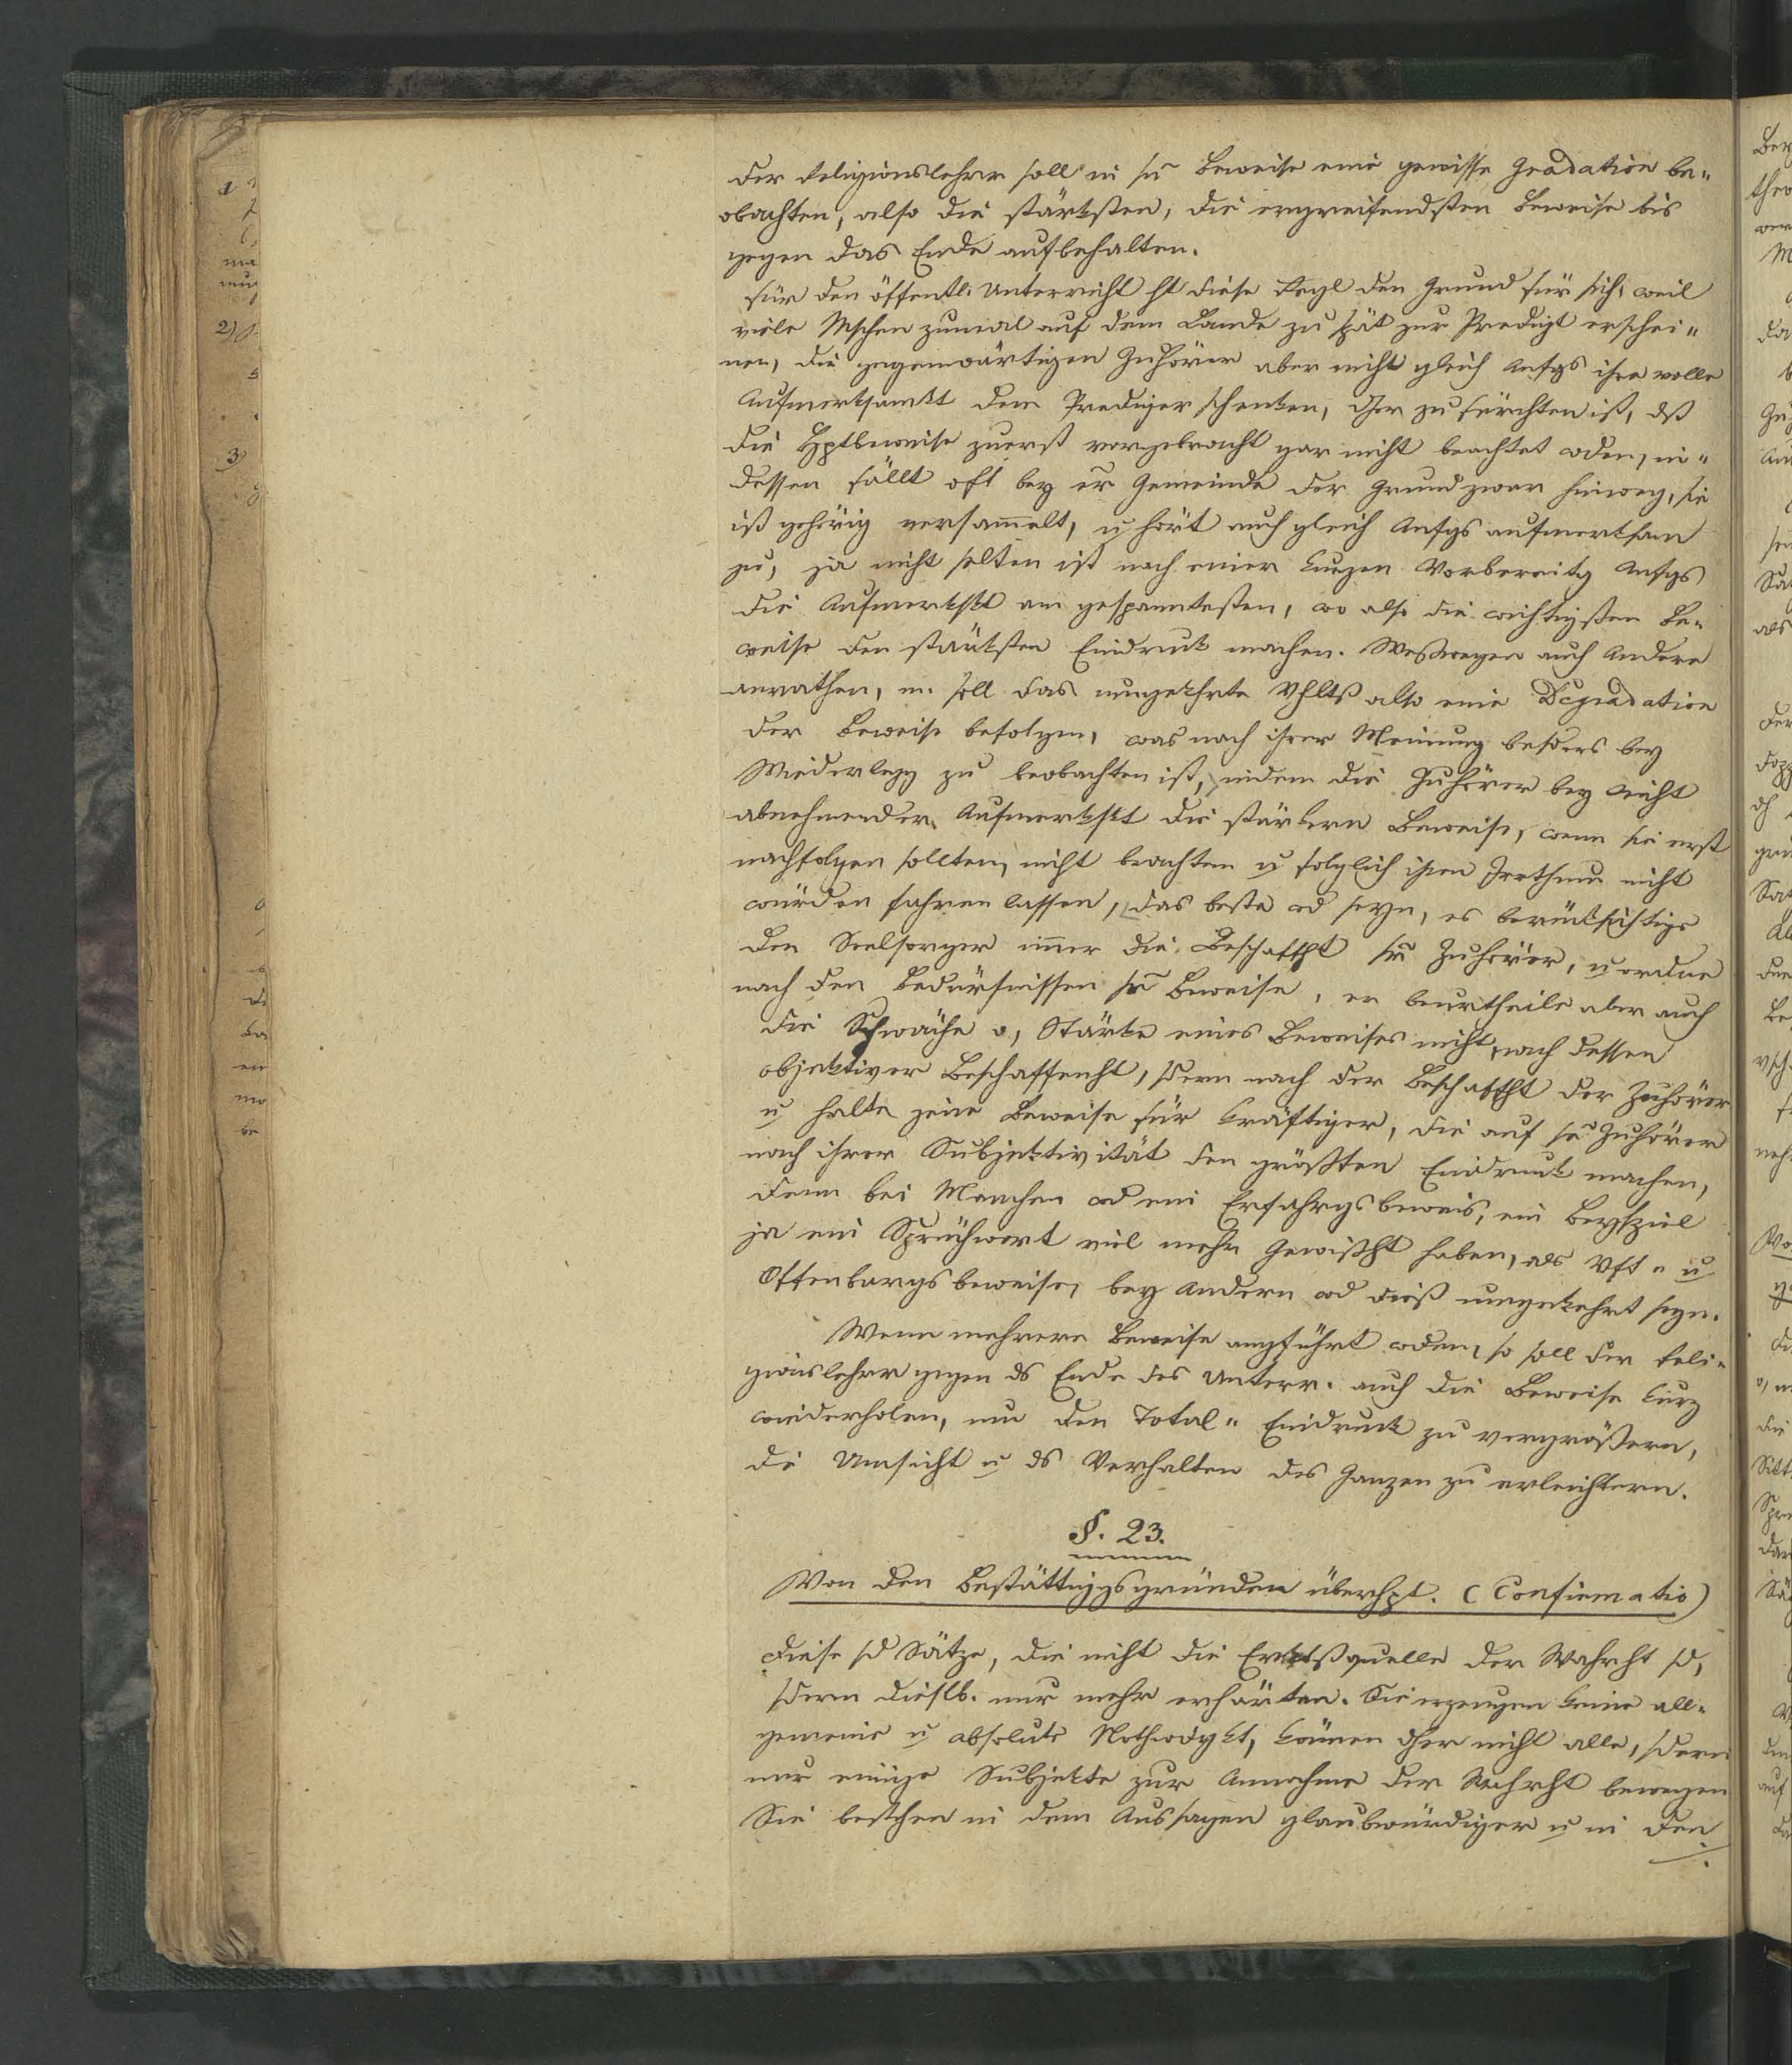 Der Religionslehrer soll in sn Beweise eine gewisse Gradation be„
obachten, also die stärksten, die ergreifendsten Beweise bis
gegen das Ende aufbehalten.
Für den öffentl. Unterricht ht diese Regl den Grund für sich, weil
viele Mschen zumal auf dem Lande zu spät zur Predigt erschei„
nen, die gegenwärtigen Zuhörer aber nicht gleich Anfgs ihre volle
Aufmerksamkt dem Prediger schenken, dher zu fürchten ist, dß
die Hptbeweise zuerst vorgebracht gar nicht beachtet wden, in„
dessen fällt oft bey er Gemeinde der Grund zwar hinweg, sie
ist gehörig versam̄elt, u hört auch gleich Anfgs aufmerksam
zu, ja nicht selten ist nach einer kurzen Vorbereitg Anfgs
die Aufmerkskt am gespanntesten, wo also die wichtigsten Be„
weise den stärksten Eindruck machen. Weßwegen auch Andere
anrathen, m. soll das umgekehrte Vhltß also eine Degradation
der Beweise befolgen, was nach ihrer Meinung besders bey
Wiederlegg zu beobachten ist, indem die Zuhörer bey nicht
abnehmender Aufmerkskt die stärkern Beweise, wenn sie erst
nachfolgen sollten, nicht beachten u folglich ihren Irrthum nicht
würden fahren lassen, das beste wd seyn, es berücksichtige
der Seelsorger im̄er die Beschaffht sr Zuhörer, u ordne
nach den Bedürfnissen sn Beweise, er beurtheile aber auch
die Schwäche o, Stärke eines Beweises nicht nach dessen
objektiver Beschaffenht, sdern nach der Beschaffht der Zuhörer
u halte jene Beweise für kräftiger, die auf sn Zuhörer
nach ihrer Subjektivität den größten Eindruck machen,
denn bei Manchen wd ein Erfahrgsbeweis, ein Beyspiel
ja ein Sprüchwort viel mehr Gewißht haben, als Vft „ u
Offenbargsbeweise, bey Andern wd dieß umgekehrt seyn.
Wenn mehrere Beweise angführt wden, so soll der Reli„
gionslehrer gegen ds Ende des Unterr. auch die Beweise kurz
wiederholen, um den Total „ Eindruck zu vergrößern,
die Umsicht u ds Verhalten des Ganzen zu erleichtern.
§. 23.
Von den Bestättiggsgründen überhpt. (Confirmatio)
Diese sd Sätze, die nicht die Erktßquelle der Wahrht sd,
sdern dieslb. nur mehr erhärten. Sie erzeugen keine all„
gemeine u absolute Nothwdgkt, kön̄en dher nicht alle, sdern
nur einige Subjekte zur Annahme der Wahrht bewegen
Sie bestehen in dem Aussagen glaubwürdiger u in den